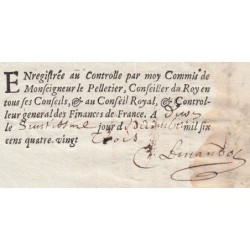 ENregistrée au Controlle par moy Commis de
Monseigneur le Pelletier, Conseiller du Roy en
tous ses Conseils, & au Conseil Royal, & Control-
leur general des Finances de France. A
le jour de mil six
cens quatre. vingt Trois